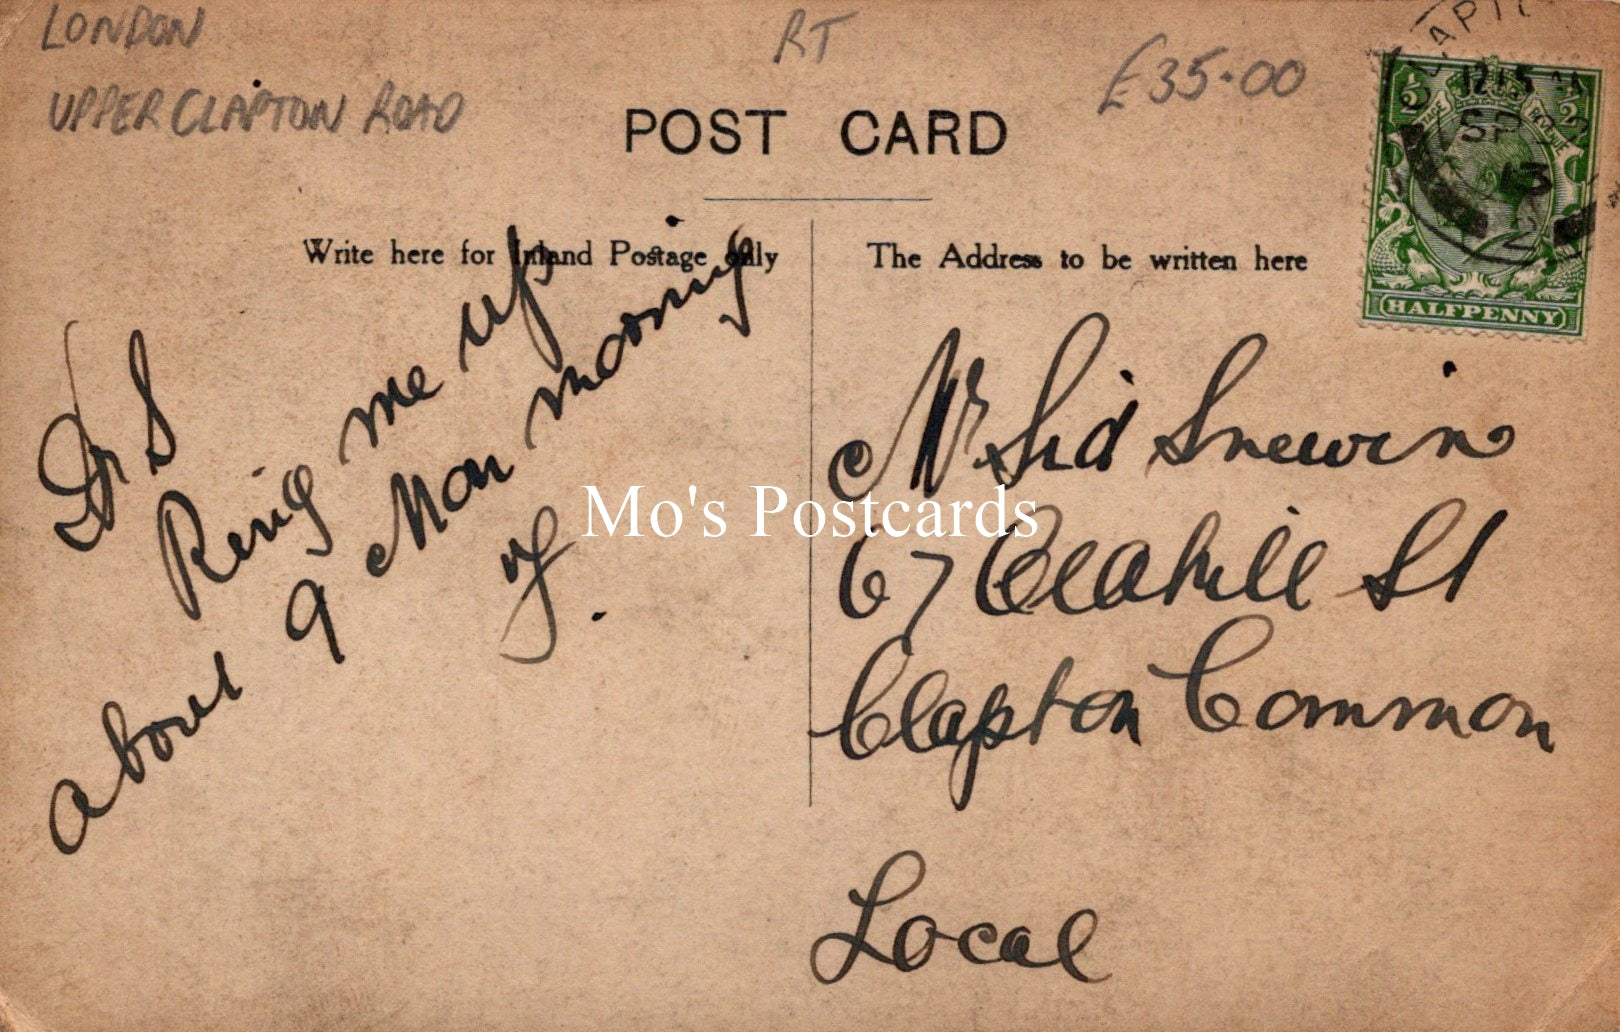 LONDON
UPPER CLAPTON ROAD
RT
£35.00
POST CARD
Write here for Inland Postage only
The Address to be written here
HALFPENNY
12 15
SP
13
2
Dr S
Ring me up
about 9 Mon morning
Mr Sid Snewin
67 Leahill St
Clapton Common
Local
Mo's Postcards